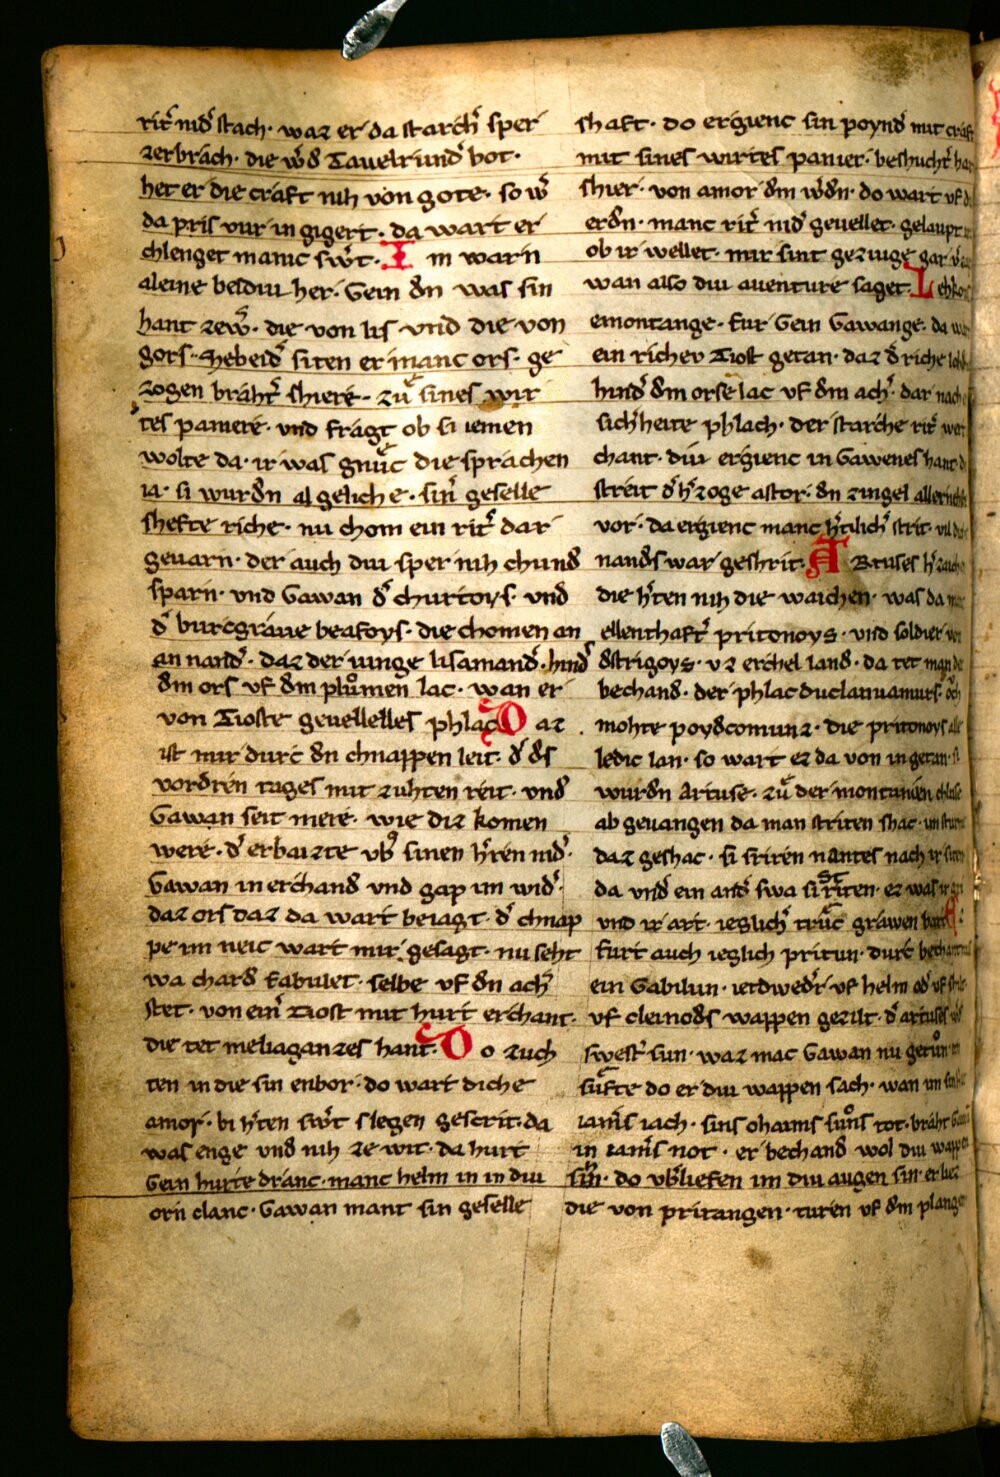 rit͛ nid͛ stach · waz er da starch͛ sper
zerbrach · die w͛d͛ Tauelrund͛ bot ·
het er die craft nih von gote · so w͛
da pris vur in gigert · da wart er
chlenget manic sw͛t · I m warn
aleine beidiu her · Gein dn was sin
hant zew͛ · die von lis vnd die von
gors · Mebeid͛ siten er manc ors · ge
zogen bråht͛ shiere · zuͤ sines wir
tes paniere · vnd fragt ob si iemen
wolte da · ir was gnuͤc die sprachen
ia · si wurdn al geliche · sin͛ geselle
shefte riche · nu chom ein rit͛ dar
geuarn · der auch diu sper nih chund
sparn · vnd Gawan d͛ churtoys · vnd
d͛ burcgraue beafoys · die chomen an
an nand͛ · daz der iunge lisamand͛ · hind͛
dm ors vf dm pluͦmen lac · wan er
von Tioste geuellelles phlac D az
ist mir durc dn chnappen leit · d͛ ds
vordren tages mit zuhten reit · vnd
Gawan seit mere · wie diz komen
were · d͛ erbaizte vb͛ sinen h͛ren nid͛ ·
Gawan in erchand vnd gap im wid͛ ·
daz ors daz da wart beiagt · d͛ chnap
pe im neic wart mir gesagt · nu seht
wa chard kabulet · selbe vf dn ach͛
stet · von ein͛ Tiost mit hurt erchant ·
die tet meliaganzes hant · D o zuch
ten in die sin enbor · do wart diche
amor · bi h͛ten sw͛t slegen gescrit · da
was enge vnd nih ze wit · da hurt
Gein hurte dranc · manc helm in in diu
orn clanc · Gawan mant sin geselle
shaft · do ergienc sin poynd͛ mit craft
mit sines wirtes panier · beshucht͛
shier · von amor dm w͛dn · do wart vf
erdn · manc rit͛ nid͛ geuellet · gelaupt
ob ir wellet · mir sint geziuge gar
wan also diu auenture saget · L
emontange · fur Gein Gawange · da
ein richer Tiost getan · daz d͛ riche
hind͛ dm orse lac vf dm ach͛ · dar nach
sich͛heite phlach · der starche rit͛
chant · diu ergienc in Gawenes hant
streit d͛ h͛zoge astor · dn zingel
vor · da ergienc manc h͛tilich͛ strit ·
nands war geshrit · A Rtuses
die h͛ten nih die waichen · was da
ellenthaft͛ pritonoys · vnd soldier
dstrigoys · vz erchel land · da tet man
bechand · der phlac duclanuamurs ·
mohte poydcomunz · die pritonoys
ledic lan · so wart ez da von in getan ·
wurdn Artuse · zuͤ der montanien
ab geuangen da man striten shac ·
daz geshac · si sriren nantes nach ir
da vnd ein and͛ swa si riten · ez was
vnd ir art · ieglich͛ truͤc grawen
furt auch ieglich pritun · durc
ein Gabilun · ietdwed͛r vf helm od͛ vf
vf cleinods wappen gezilt · d͛ artuses
swest͛ sun · waz mac Gawan nu getuͦn
suͤfte do er diu wappen sach · wan im
iam͛s iach · sins ohaims suͦns tot · bråht
in iam͛s not · er bechand wol diu
shin · do vb͛liefen im diu augen sin · er
die von pritangen · turen vf dm plange